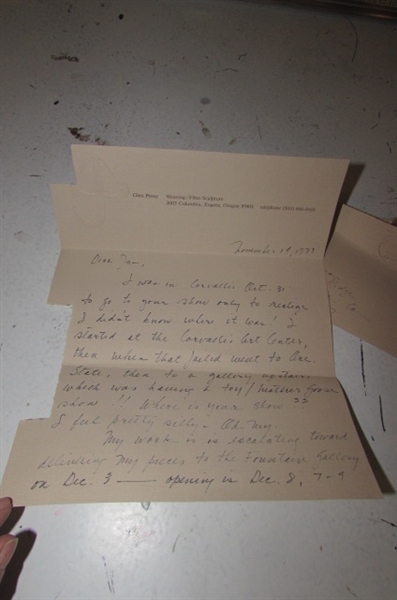 Weaving / Fiber Sculpture
Columbia, Eugene, Oregon telephone
November 19, 1977
Dear Jan,
I was in Corvallis Oct. 31
to go to your show only to realize
I didn't know where it was! I
started at the Corvallis Art Center,
then when that failed went to Ore.
State, then to a gallery upstairs
which was having a toy / mother goose
show !! Where is your show ??
I feel pretty silly. Oh my.
My work is escalating toward
delivering my pieces to the Fountain Gallery
on Dec. 3 — opening is Dec. 8, 7-9